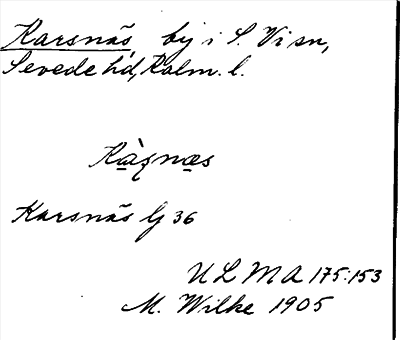 Karsnäs, by i S. Vi sn,
Sevede hd, Kalm. l.
Kå̠ʂnæs
Karsnäs G 36
ULMA 175:153
M. Wilke 1905